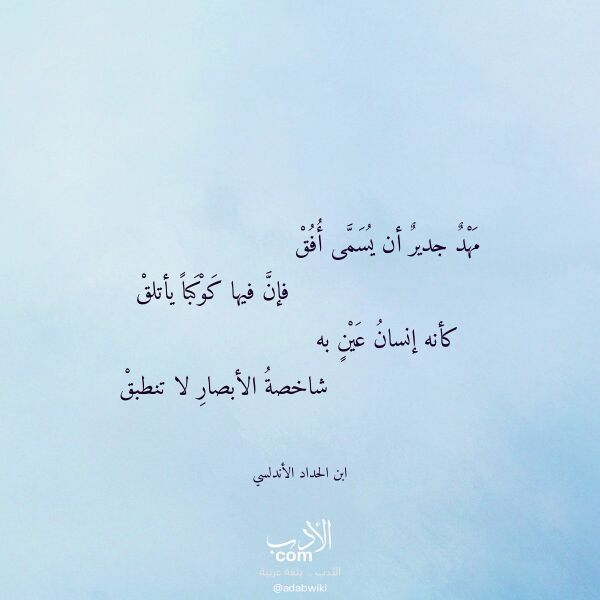 مَهْدٌ جديرٌ أن يُسَمَّى أُفُقْ
فإنَّ فيها كَوْكَباً يأتلقْ
كأنه إنسانُ عَيْنٍ به
شاخصةُ الأبصارِ لا تنطبقْ
ابن الحداد الأندلسي
الأدب
com
الأدب .. بلغة عربية
@adabwiki